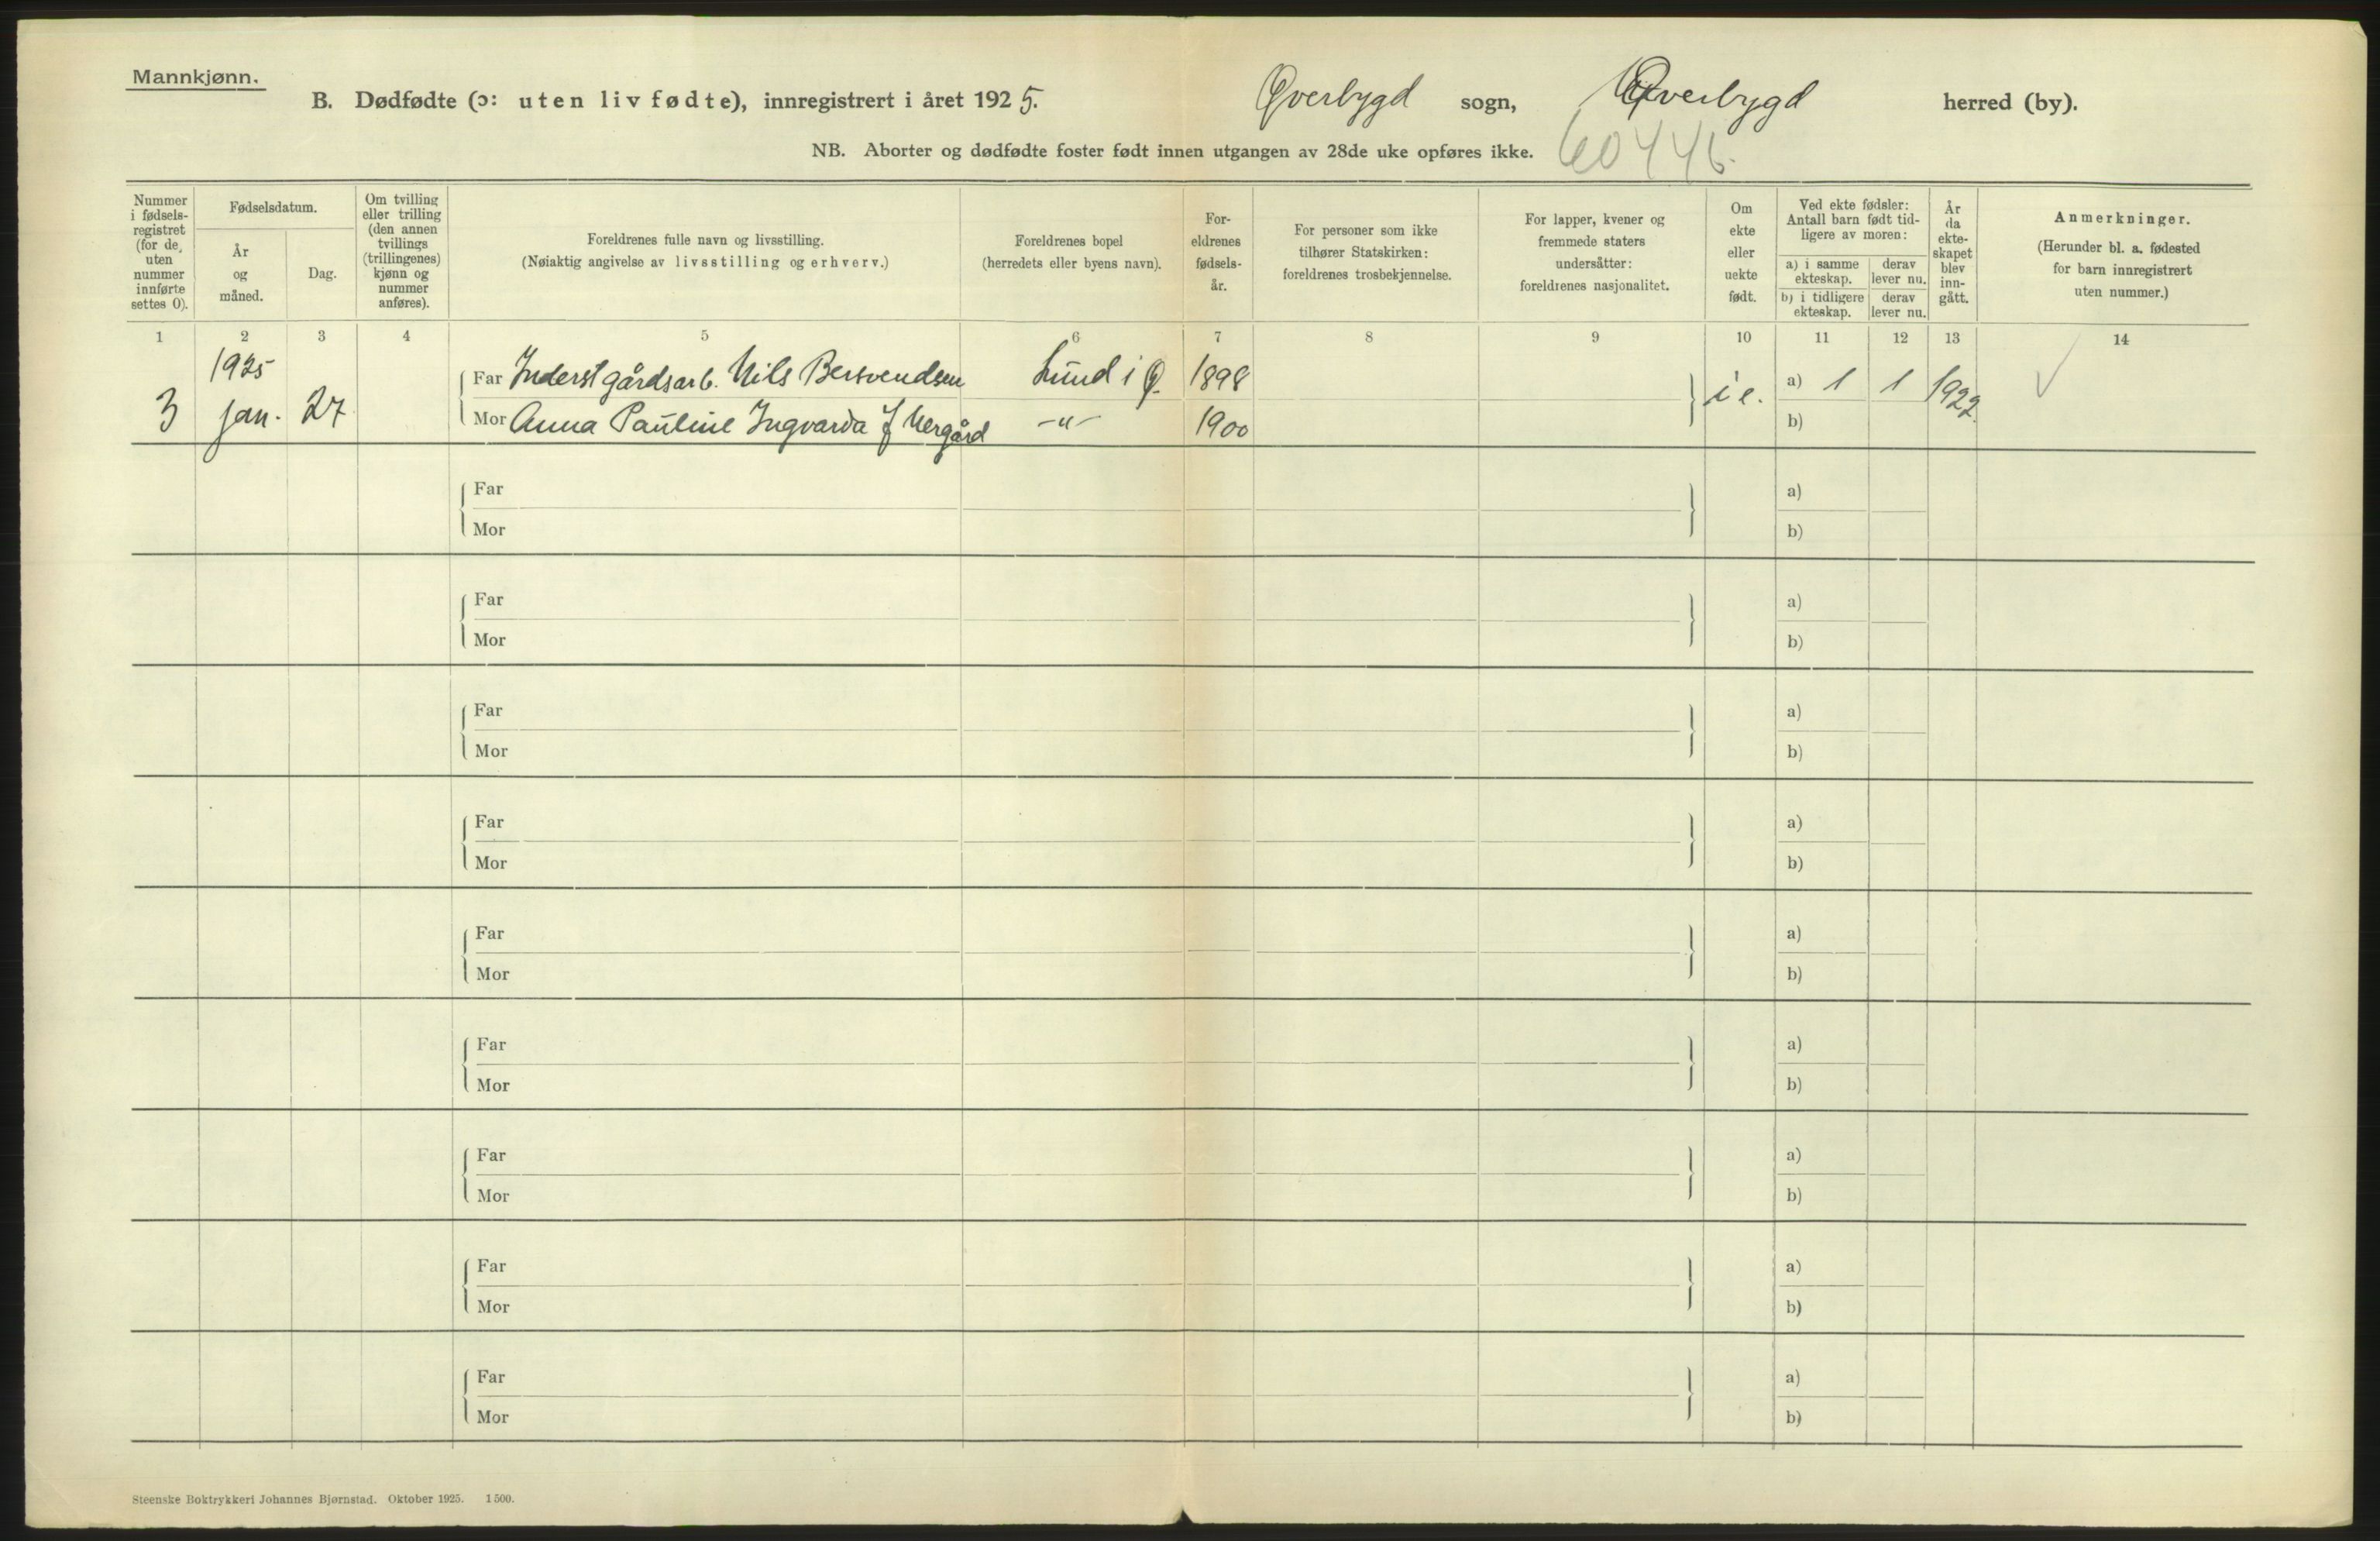 Mannkjønn.
B. Dødfødte (ɔ: uten liv fødte), innregistrert i året 1925. Øverbygd sogn, Øverbygd herred (by).
NB. Aborter og dødfødte foster født innen utgangen av 28de uke opføres ikke.
Nummer i fødsels- registret (for de uten nummer innførte settes 0).
Fødselsdatum.
År og måned.
Dag.
Om tvilling eller trilling (den annen tvillings (trillingenes) kjønn og nummer anføres).
Foreldrenes fulle navn og livsstilling.
(Nøiaktig angivelse av livsstilling og erhverv.)
Foreldrenes bopel
(herredets eller byens navn).
For- eldrenes fødsels- år.
For personer som ikke tilhører Statskirken: foreldrenes trosbekjennelse.
For lapper, kvener og fremmede staters undersåtter: foreldrenes nasjonalitet.
Om ekte eller uekte født.
Ved ekte fødsler: Antall barn født tid- ligere av moren:
a) i samme ekteskap.
derav lever nu.
b) i tidligere ekteskap.
derav lever nu.
År da ekte- skapet blev inn- gått.
Anmerkninger.
(Herunder bl. a. fødested for barn innregistrert uten nummer.)
1 2 3 4 5 6 7 8 9 10 11 12 13 14
1925
Far Inderst gårdsarb. Nils Bersvendsen Lund i Ø. 1898
i e. a) 1 1 1922
3 jan. 27
Mor Anna Pauline Ingvarda f Nergård -"- 1900
b)
Far a)
Mor b)
Far a)
Mor b)
Far a)
Mor b)
Far a)
Mor b)
Far a)
Mor b)
Far a)
Mor b)
Far a)
Mor b)
Far a)
Mor b)
Far a)
Mor b)
Steenske Boktrykkeri Johannes Bjørnstad. Oktober 1925. 1500.